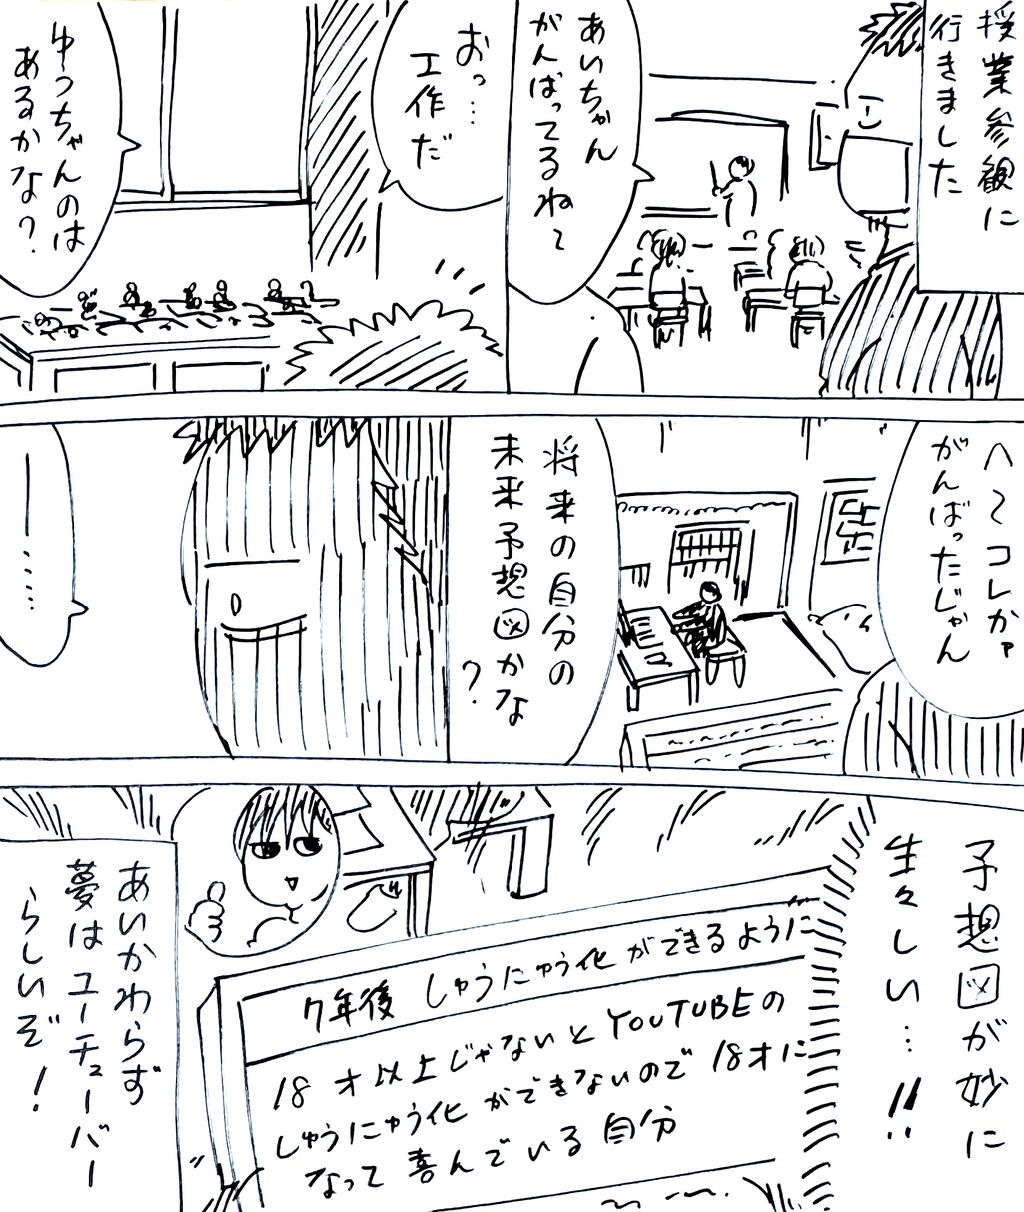 授業参観に
行きました
あいちゃん
がんばってるね～
おっ…
工作だ
ゆっちゃんのは
あるかな？
へ～コレかァ
がんばったじゃん
将来の自分の
未来予想図かな
？
ー……
予想図が妙に
生々しい…!!
7年後 しゅうにゅう化ができるように
18才以上じゃないとYOUTUBEの
しゅうにゅう化ができないので18才に
なって喜んでいる自分
あいかわらず
夢はユーチューバー
らしいぞ！